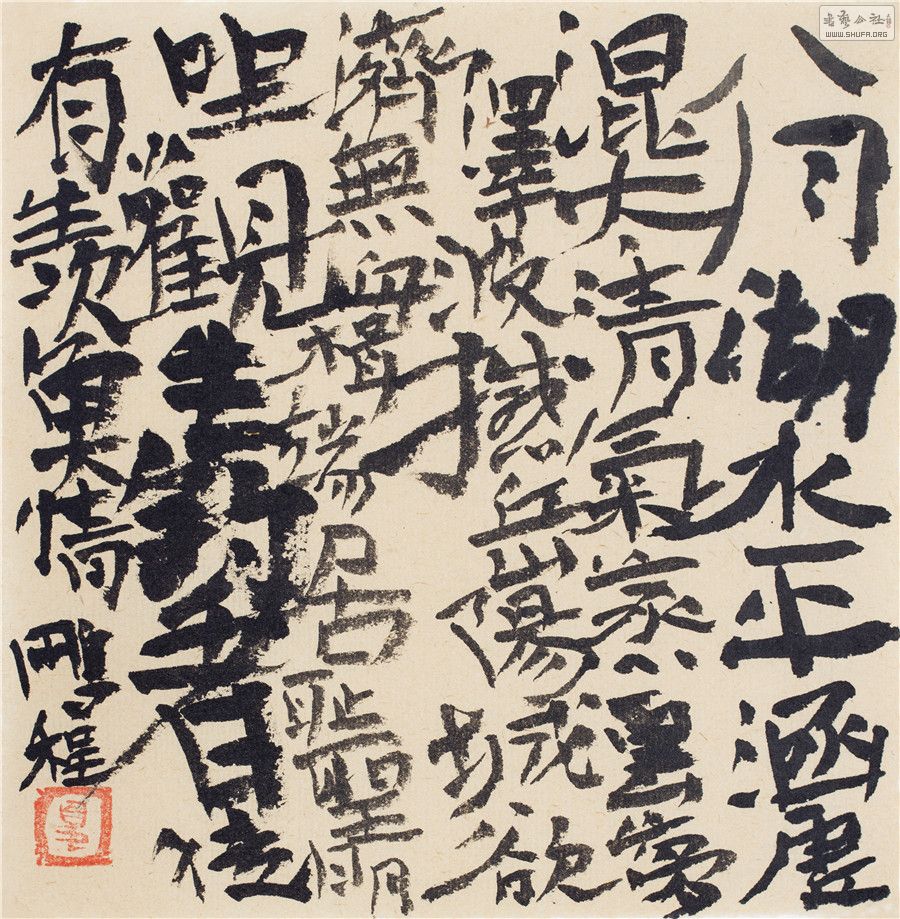 八月湖水平涵虛
混太清氣蒸雲夢
澤波撼岳陽城欲
濟無舟楫端居耻聖明
坐觀垂釣者徒
有羨魚情
鵬程
書藝公社
WWW.SHUFA.ORG